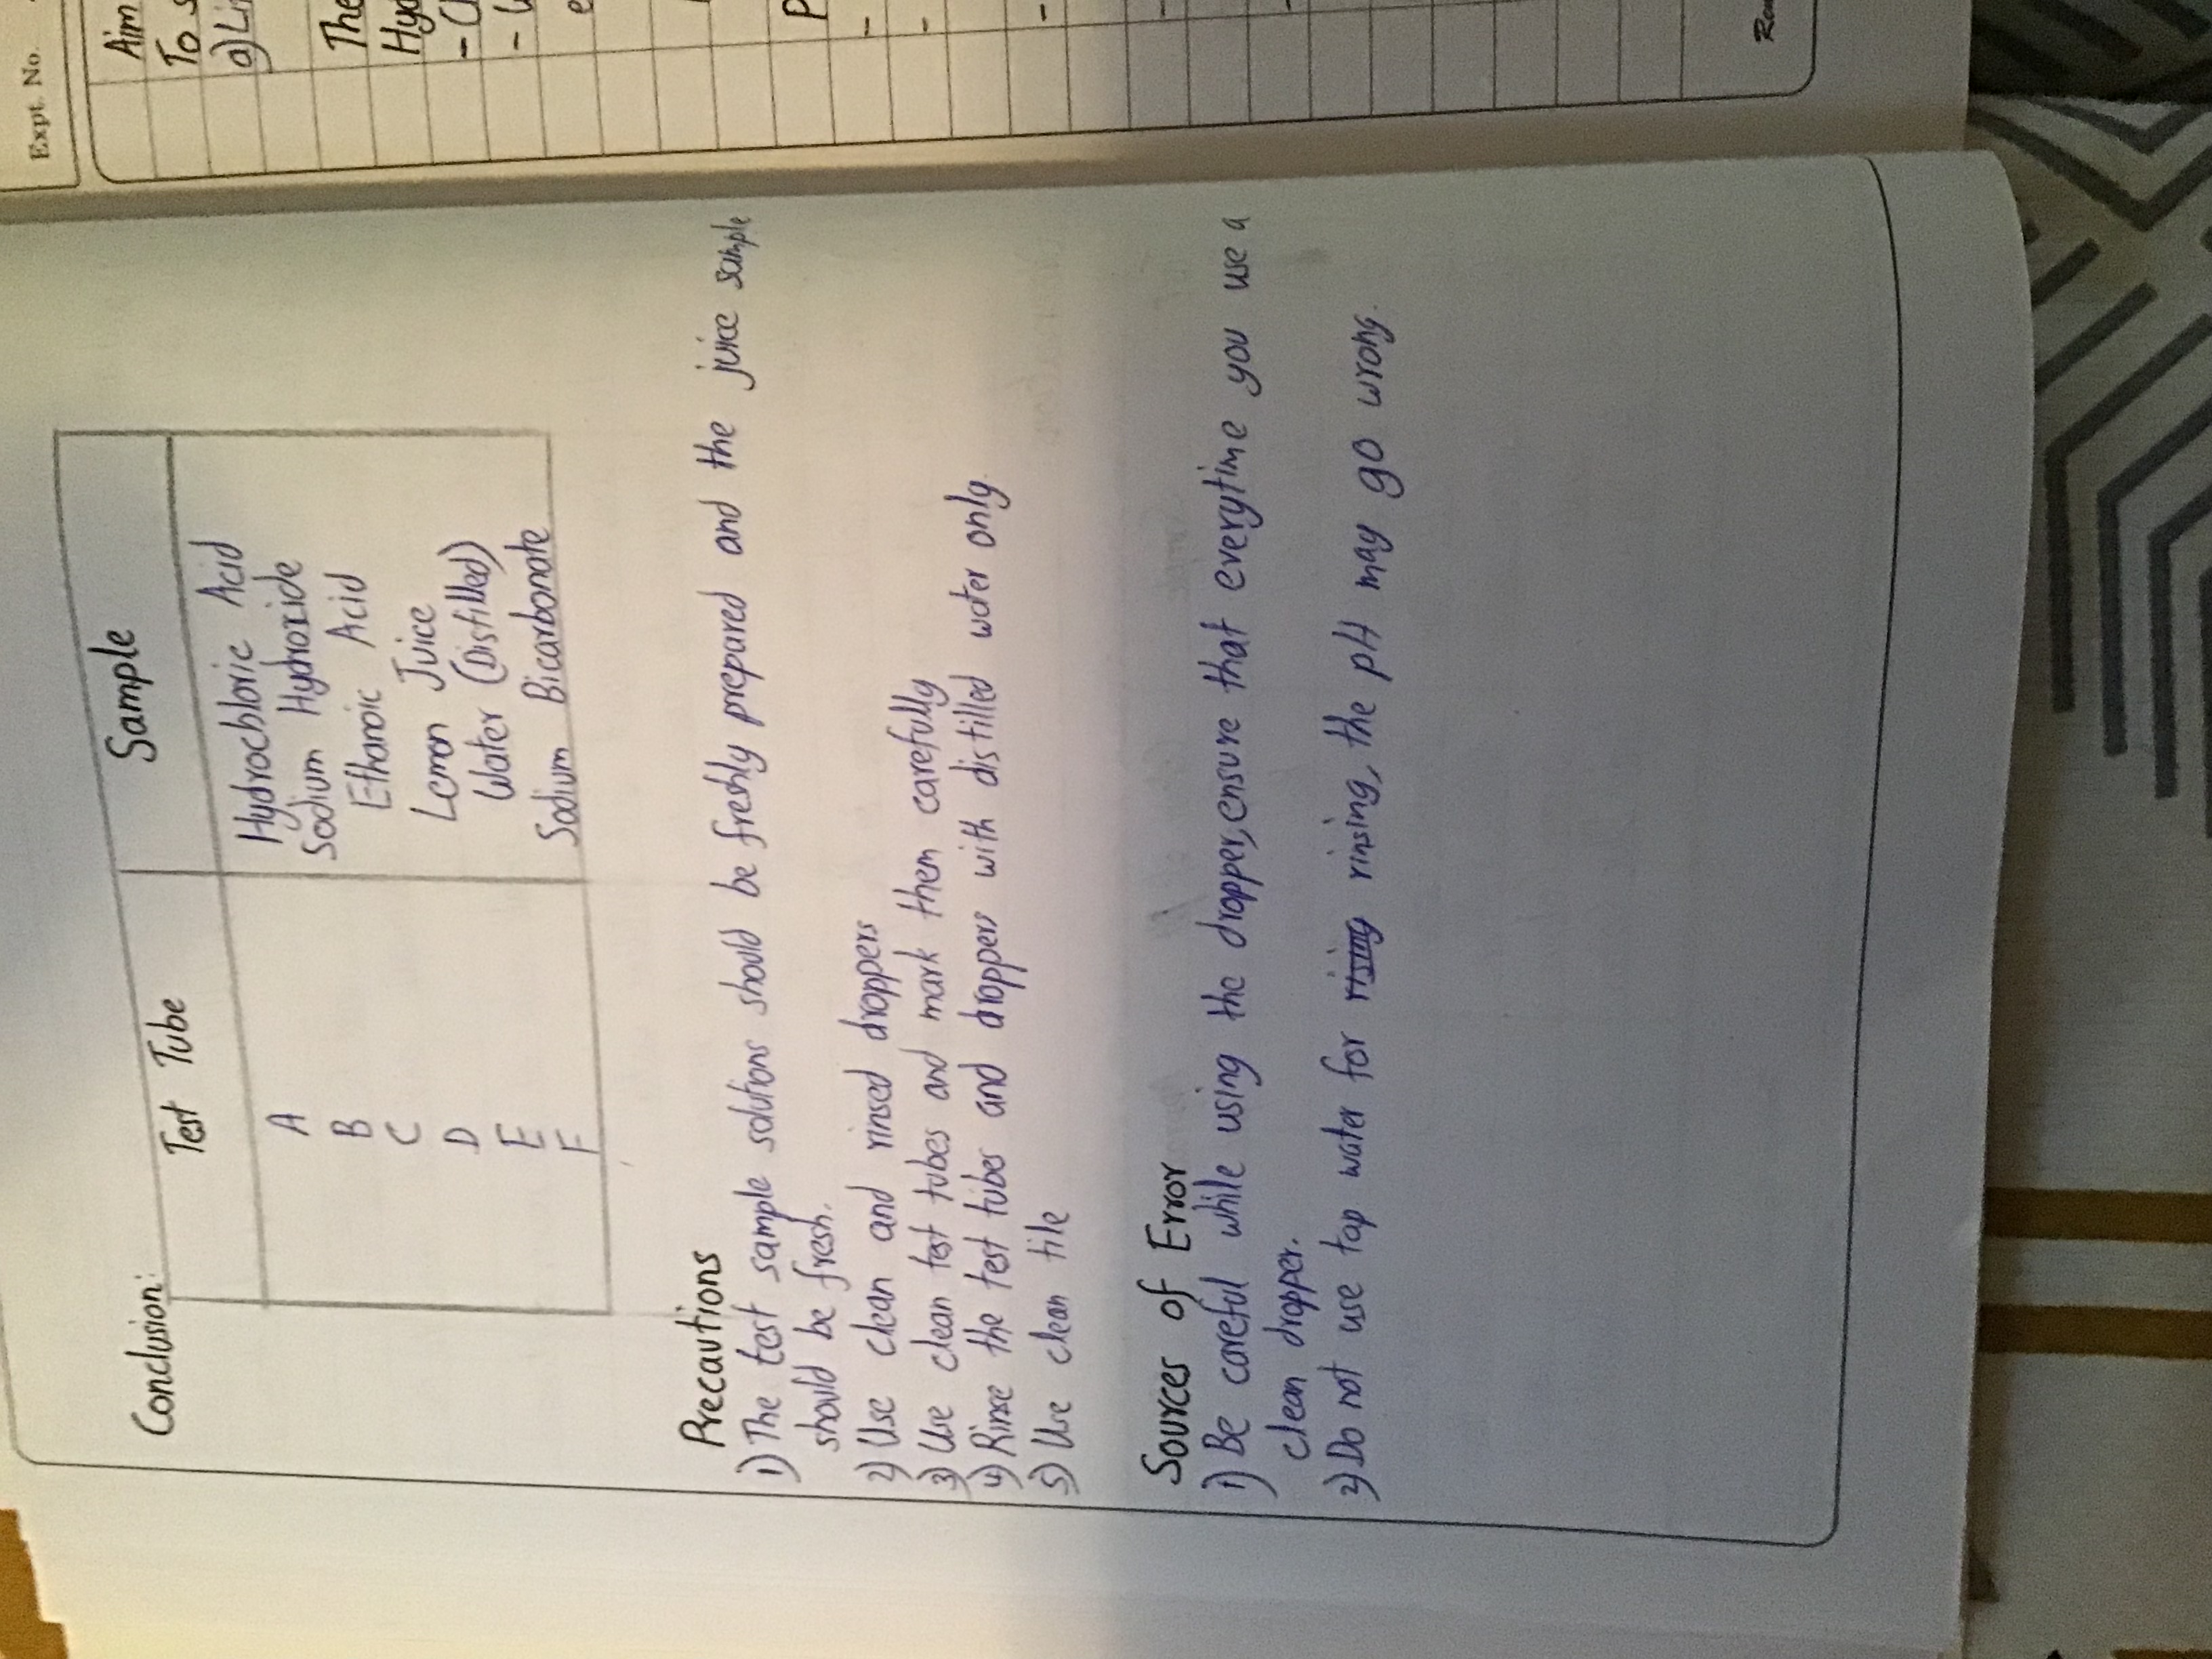 Conclusion:
Test Tube Sample
A Hydrochloric Acid
B Sodium Hydroxide
C Ethanoic Acid
D Lemon Juice
E Water (Distilled)
F Sodium Bicarbonate
Precautions
1) The test sample solutions should be freshly prepared and the juice sample
should be fresh.
2) Use clean and rinsed droppers
3) Use clean test tubes and mark them carefully
4) Rinse the test tubes and droppers with distilled water only.
5) Use clean tile
Sources of Error
1) Be careful while using the dropper, ensure that everytime you use a
clean dropper.
2) Do not use tap water for rising rinsing, the pH may go wrong.
Expt. No.
Aim
To s
a) Li
The
Hyd